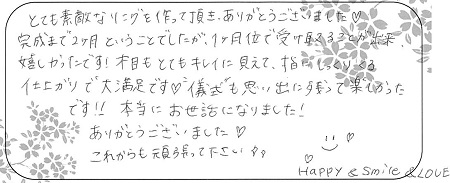 とても素敵なリングを作って頂き、ありがとうございました♡
完成まで2ヶ月ということでしたが、1ヶ月位で受け取ることが出来、
嬉しかったです！木目もとてもキレイに見えて、指にしっくりくる
仕上がりで大満足です♡"儀式"も思い出に残って楽しかった
です!! 本当にお世話になりました！
ありがとうございました♡
これからも頑張って下さい
HAPPY & Smile & LOVE